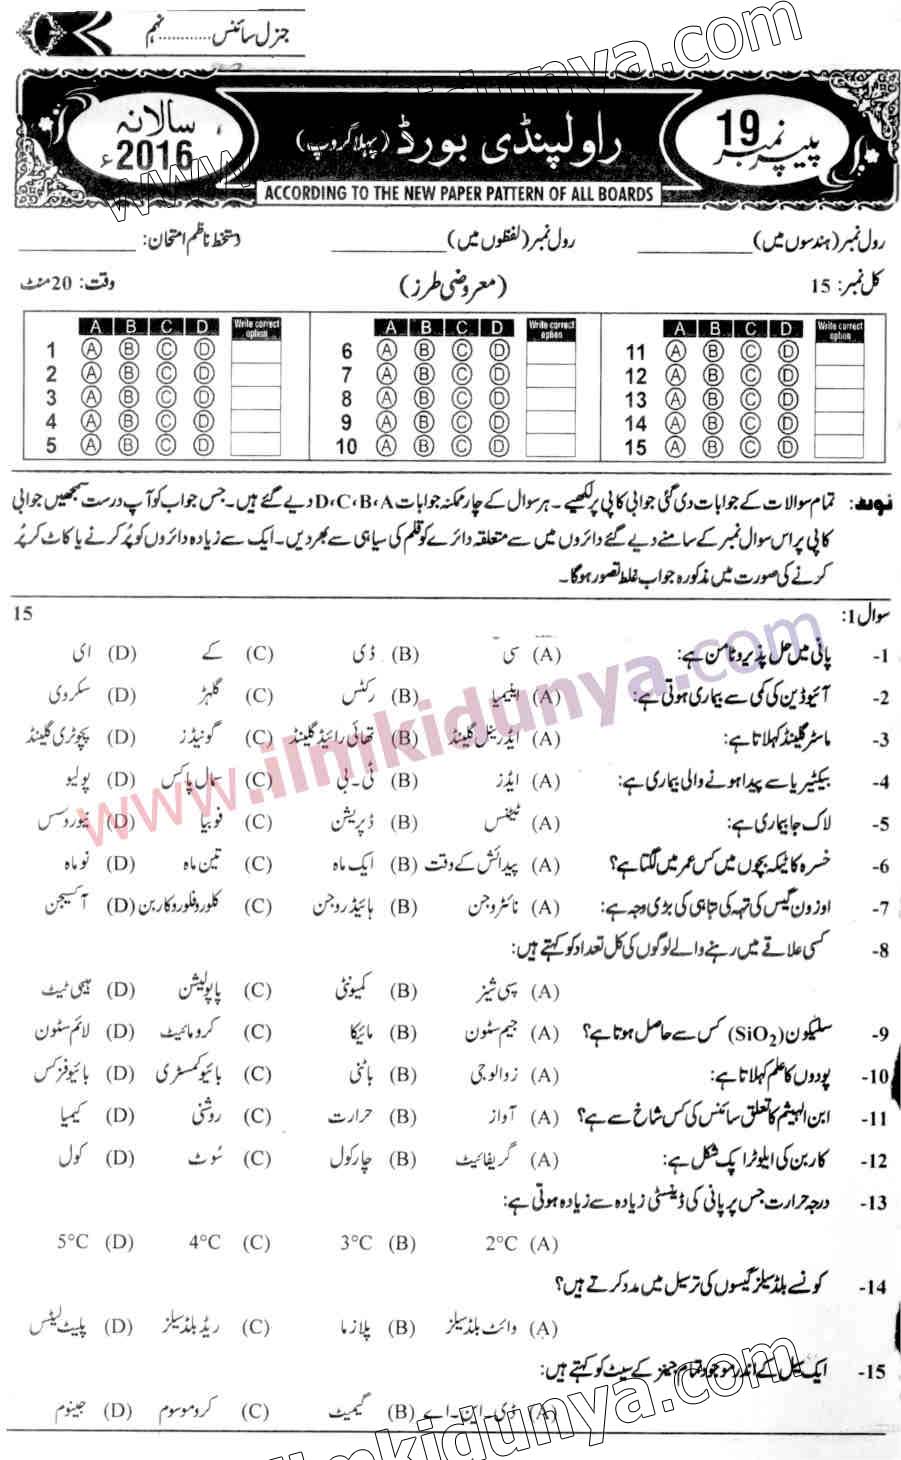 جنرل سائنس............نہم
پیپر نمبر 19
راولپنڈی بورڈ (پہلا گروپ)
سالانہ 2016ء
ACCORDING TO THE NEW PAPER PATTERN OF ALL BOARDS
رول نمبر (ہندسوں میں) رول نمبر (لفظوں میں) دستخط ناظم امتحان:
کل نمبر: 15 (معروضی طرز) وقت: 20 منٹ
A B C D Write correct option A B C D Write correct option A B C D Write correct option
1 A B C D 6 A B C D 11 A B C D
2 A B C D 7 A B C D 12 A B C D
3 A B C D 8 A B C D 13 A B C D
4 A B C D 9 A B C D 14 A B C D
5 A B C D 10 A B C D 15 A B C D
نوٹ: تمام سوالات کے جوابات دی گئی جوابی کاپی پر لکھیے۔ ہر سوال کے چار ممکنہ جوابات D،C،B،A دیے گئے ہیں۔ جس جواب کو آپ درست سمجھیں جوابی
کاپی پر اس سوال نمبر کے سامنے دیے گئے دائروں میں سے متعلقہ دائرے کو قلم کی سیاہی سے بھر دیں۔ ایک سے زیادہ دائروں کو پُر کرنے یا کاٹ کر پُر
کرنے کی صورت میں مذکورہ جواب غلط تصور ہوگا۔
سوال 1: 15
1- پانی میں حل پذیر وٹامن ہے: (A) سی (B) ڈی (C) کے (D) ای
2- آئیوڈین کی کمی سے بیماری ہوتی ہے: (A) اینیمیا (B) رکٹس (C) گلہڑ (D) سکروی
3- ماسٹر گلینڈ کہلاتا ہے: (A) ایڈرینل گلینڈ (B) تھائی رائیڈ گلینڈ (C) گونیڈز (D) پچوٹری گلینڈ
4- بیکٹیریا سے پیدا ہونے والی بیماری ہے: (A) ایڈز (B) ٹی۔بی (C) سمال پاکس (D) پولیو
5- لاک جا بیماری ہے: (A) ٹیٹنس (B) ڈپریشن (C) فوبیا (D) نیوروسس
6- خسرہ کا ٹیکہ بچوں میں کس عمر میں لگتا ہے؟ (A) پیدائش کے وقت (B) ایک ماہ (C) تین ماہ (D) نو ماہ
7- اوزون گیس کی تہہ کی تباہی کی بڑی وجہ ہے: (A) نائٹروجن (B) ہائیڈروجن (C) کلوروفلوروکاربن (D) آکسیجن
8- کسی علاقے میں رہنے والے لوگوں کی کل تعداد کو کہتے ہیں:
(A) سپی شیز (B) کمیونٹی (C) پاپولیشن (D) ہیبی ٹیٹ
9- سلیکون (SiO2) کس سے حاصل ہوتا ہے؟ (A) جیم سٹون (B) مائیکا (C) کرومائیٹ (D) لائم سٹون
10- پودوں کا علم کہلاتا ہے: (A) زوالوجی (B) باٹنی (C) بائیوکمسٹری (D) بائیوفزکس
11- ابن الہیثم کا تعلق سائنس کی کس شاخ سے ہے؟ (A) آواز (B) حرارت (C) روشنی (D) کیمیا
12- کاربن کی ایلوٹراپک شکل ہے: (A) گریفائیٹ (B) چارکول (C) سُوٹ (D) کول
13- درجہ حرارت جس پر پانی کی ڈینسٹی زیادہ سے زیادہ ہوتی ہے:
(A) 2°C (B) 3°C (C) 4°C (D) 5°C
14- کونسے بلڈ سیلز گیسوں کی ترسیل میں مدد کرتے ہیں؟
(A) وائٹ بلڈ سیلز (B) پلازما (C) ریڈ بلڈ سیلز (D) پلیٹ لیٹس
15- ایک سیل کے اندر موجود تمام جینز کے سیٹ کو کہتے ہیں:
(A) ڈی۔این۔اے (B) گیمیٹ (C) کروموسوم (D) جینوم
www.ilmkidunya.com
www.ilmkidunya.com
ilmkidunya.com